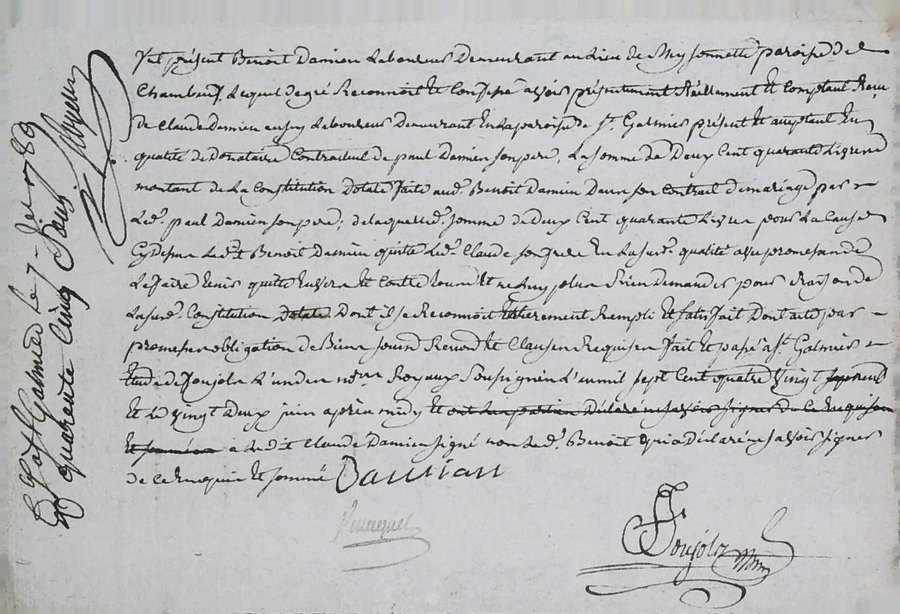 Y est présent Benoit Damien Laboureur demeurant au lieu de Meyssonnette paroisse de
Chambeuf, Lequel de gré Reconnoit et Confesse avoir présentement Réellement et Comptant Reçu
de Claude Damien aussy Laboureur demeurant En la paroisse de st. Galmier présent et acceptant En
qualité de Donataire Contractuel de paul Damien son pere, La somme de Deux Cent quarante Livres
montant de La Constitution Dotale faite aud. Benoit Damien Dans son Contrat de mariage par
Led. paul Damien son pere, de laquelle d. somme de deux Cent quarante Livres pour La Cause
Cy dessus Led. Benoit Damien quitte Led. Claude son frere En La sus d. qualité avec promesse de
Le faire tenir quitte Envers et Contre tous et ne luy plus Rien demander pour Raison de
La sus d. Constitution Dotale Dont il se Reconnoit Entierement Rempli et satisfait Dont acte par
promesse obligation de Biens soumd Renond et Clauses Requises fait et passé a st. Galmier
Etude de Foujols L'un des nores. Royaux soussignés L'an mil sept Cent quatre vingt
Et le vingt Deux juin après midy et Déclaré ne savoir signer de ce Enquis
et sommés a Led. Claude Damien signé non Led. Benoit qui a déclaré ne savoir signer
de ce Enquis et sommé Damian
Foujols
st Galmier Le 1789
quarente Cinq sous